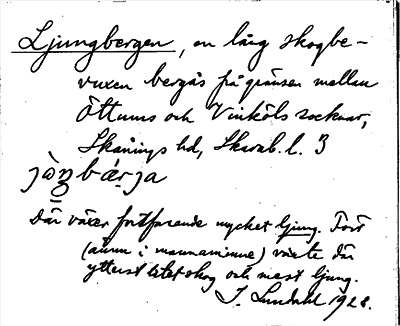 Ljungbergen, en lång skogbe-
vuxen bergås på gränsen mellan
Öttums och Vinköls socknar,
Skånings hd, Skarab. l. 3
Där växer fortfarande mycket ljung. Förr
(ännu i mannaminne) växte där
ytterst litet skog och mest ljung.
J. Lundahl 1928.